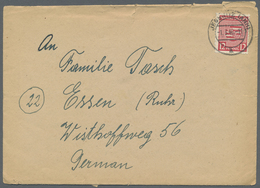 An
Familie Tasch
22
Essen (Ruhr)
Wisthoffweg 56
German
12